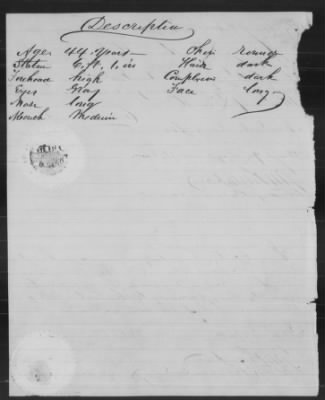 Description
Age 44 Years Chin round
Stature 6 ft. 1 in Hair dark
Forehead high Complexion dark
Eyes Gray Face long
Nose long
Mouth Medium